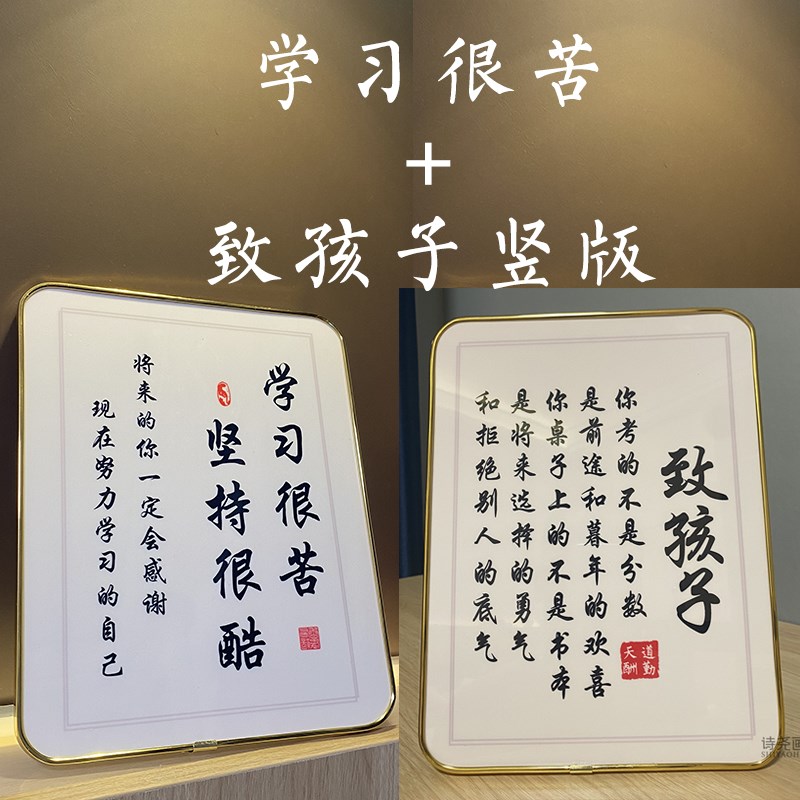 学习很苦
+
致孩子竖版
学习很苦
坚持很酷
将来的你一定会感谢
现在努力学习的自己
致孩子
你考的不是分数
是前途和暮年的欢喜
你桌子上的不是书本
是将来选择的勇气
和拒绝别人的底气
道勤
天酬
诗尧画